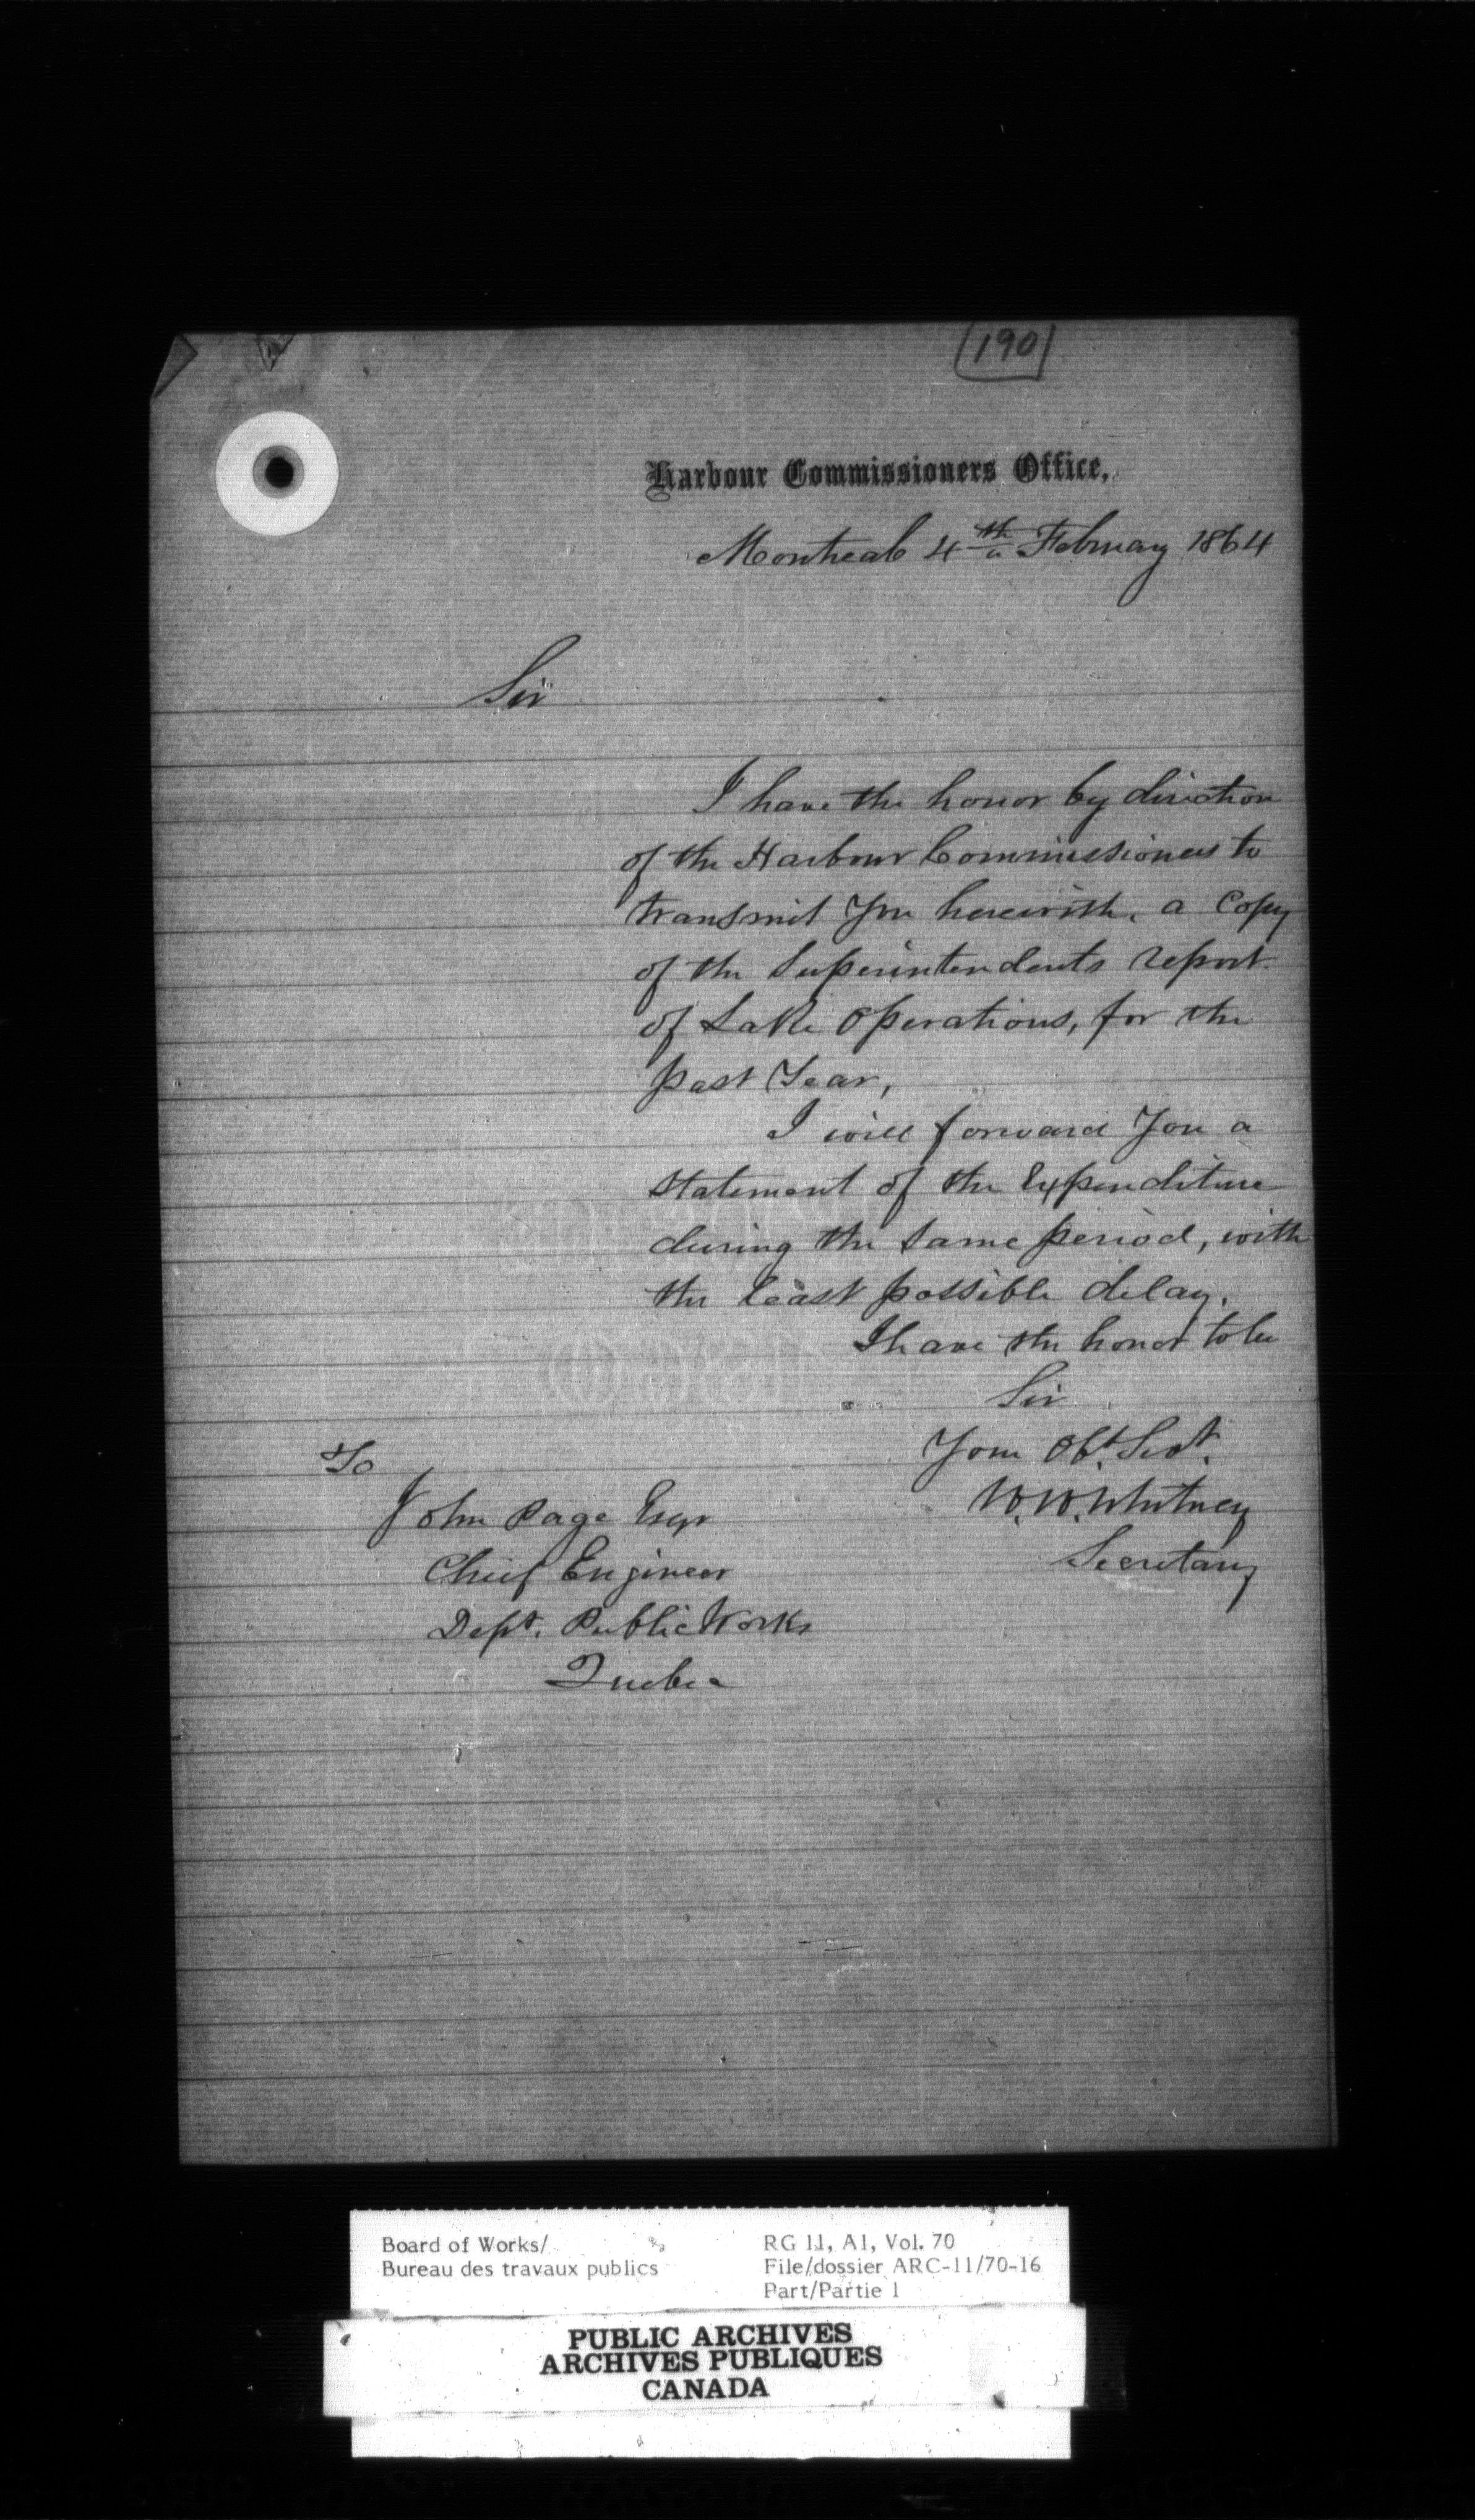 (190)
Harbour Commissioners Office,
Montreal 4th February 1864
Sir
I have the honor by direction
of the Harbour Commissioners to
transmit You herewith, a Copy
of the Superintendents report
of Lake Operations, for the
past Year,
I will forward You a
statement of the Expenditure
during the same period, with
the least possible delay.
I have the honor to be
Sir
Your Obt. Servt.
W. W. Whitney
Secretary
To
John Page Esqr
Chief Engineer
Dept. Public Works
Quebec
Board of Works/
Bureau des travaux publics
RG 11, A1, Vol. 70
File/dossier ARC-11/70-16
Part/Partie 1
PUBLIC ARCHIVES
ARCHIVES PUBLIQUES
CANADA